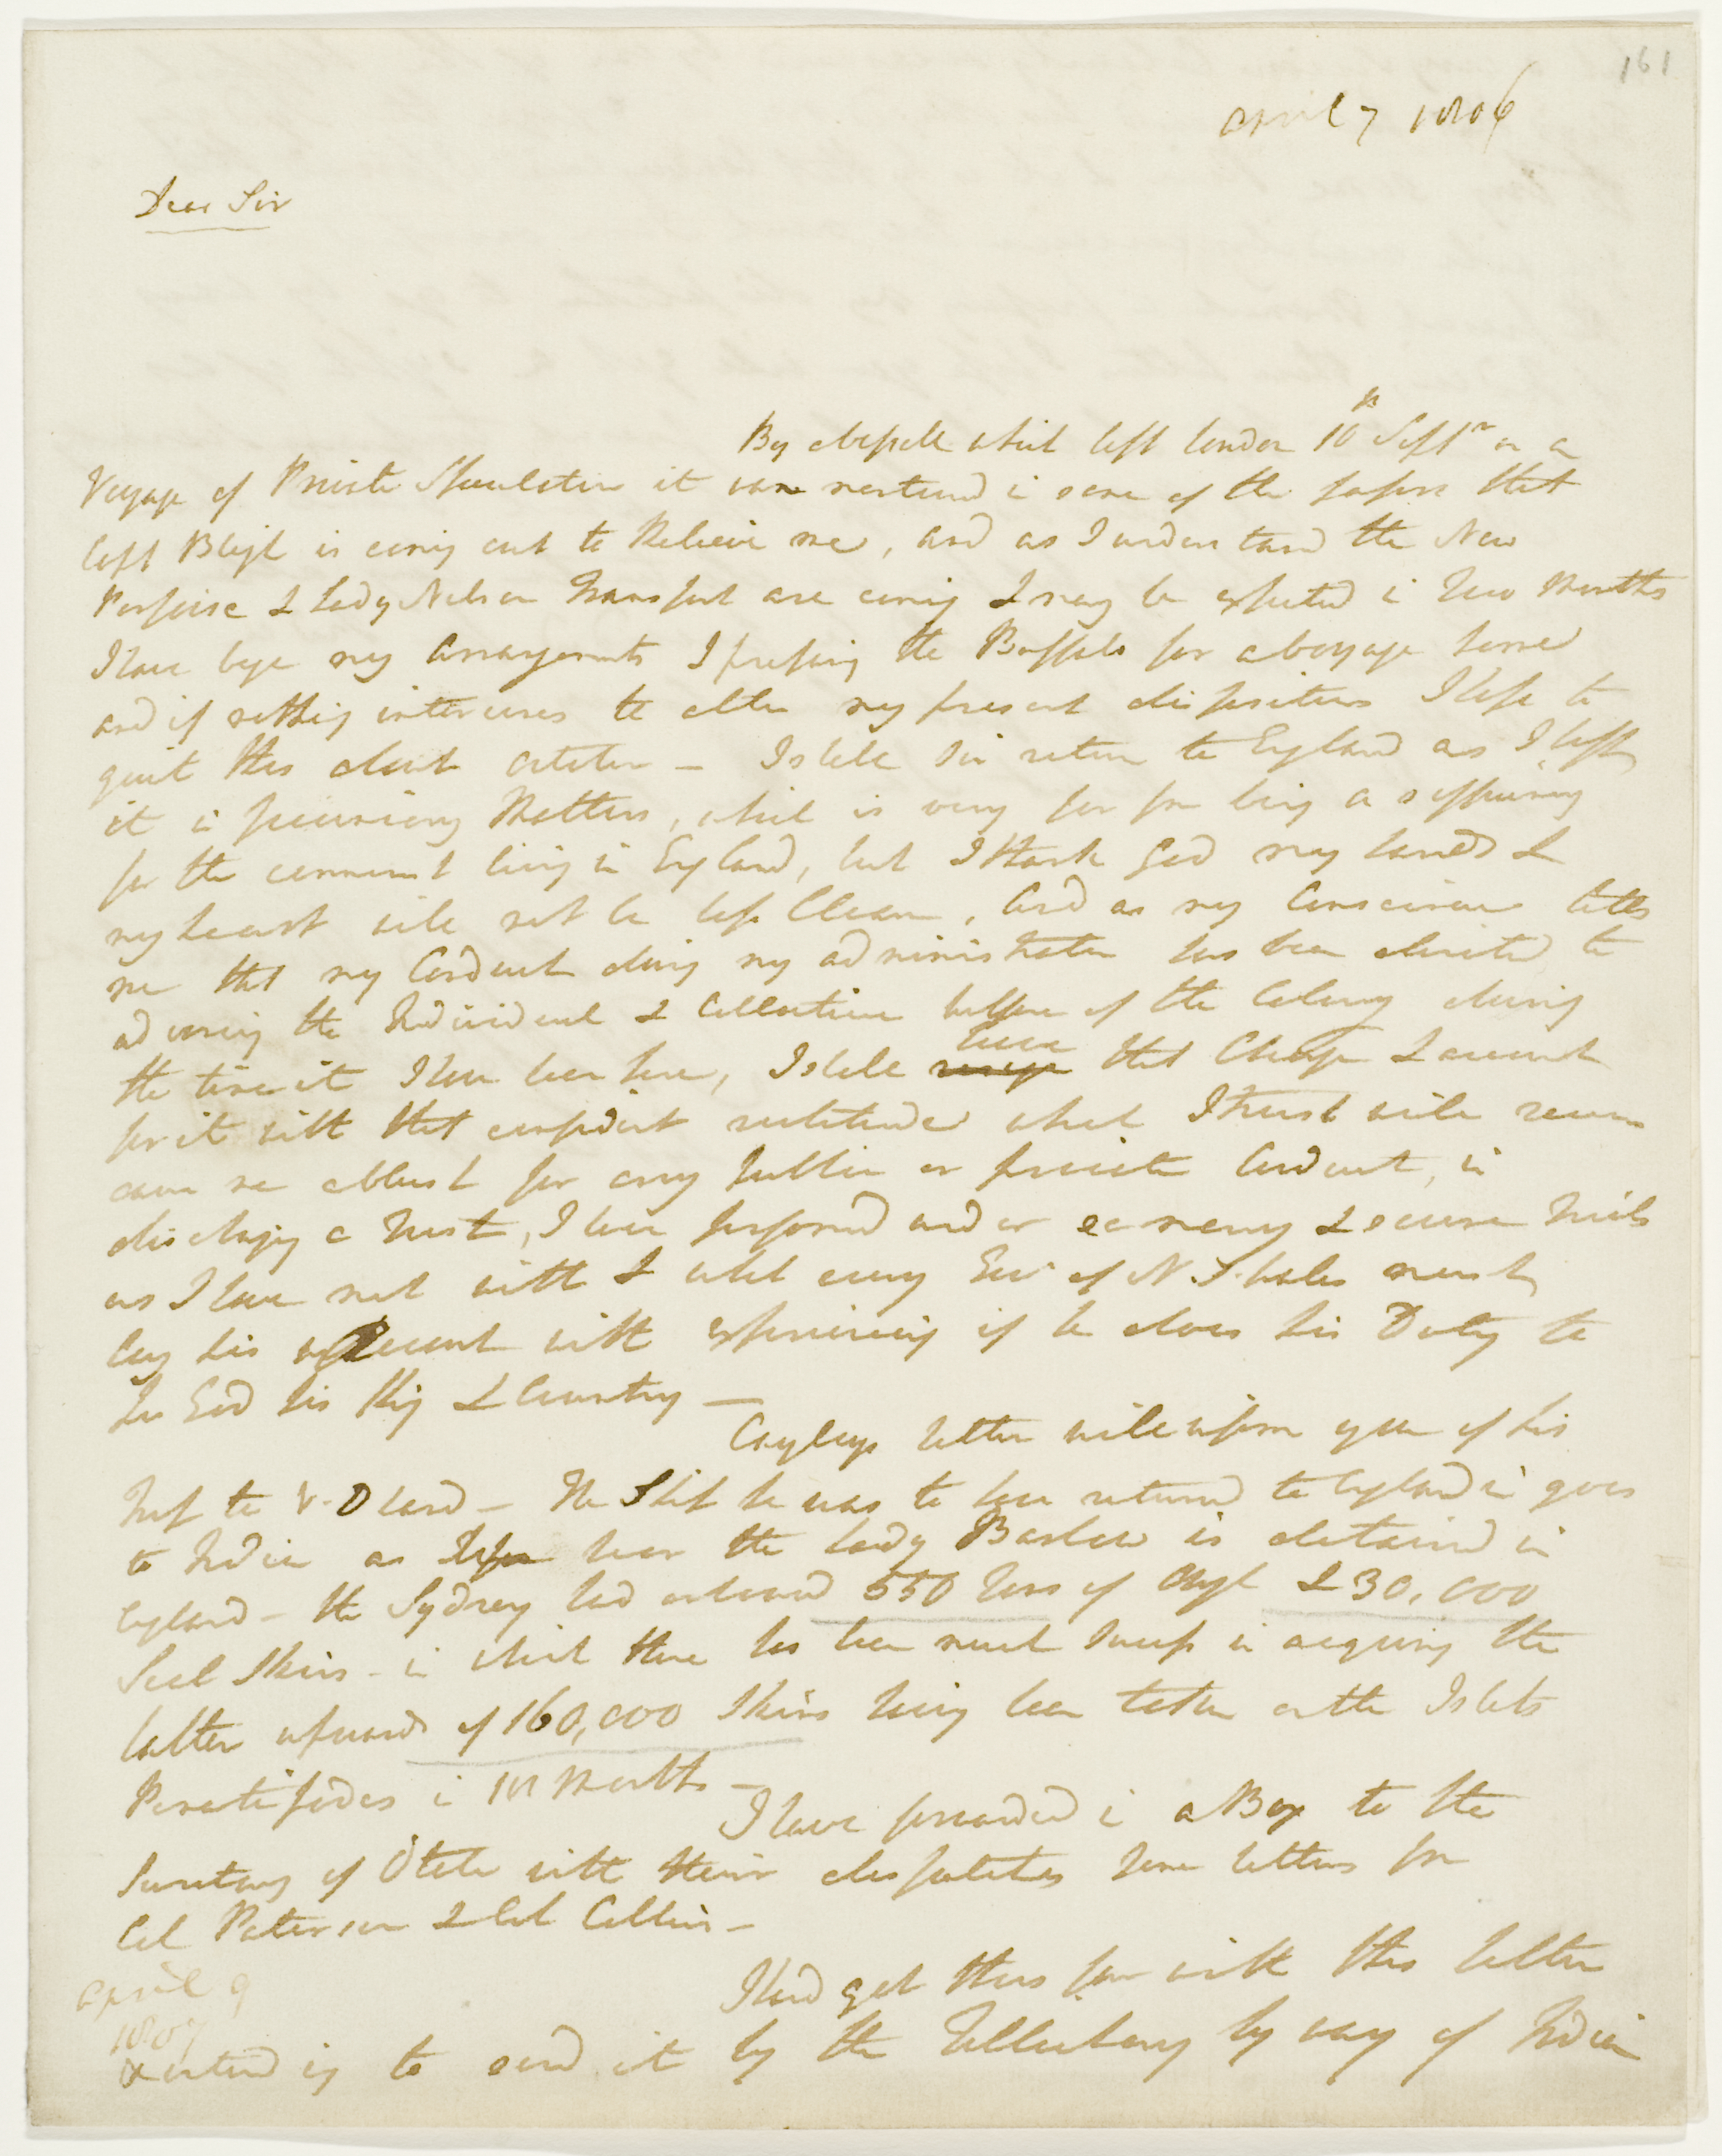 161
April 7 1806
Dear Sir
By a Vessell which left London 10th Septr on a
Voyage of Private Speculation it was mentioned in some of the papers that
Capt Bligh is coming out to Relieve me, and as I understand the New
Porpoise & Lady Nelson Transport are coming I may be expected in two Months
I have begn my Arrangements & preparing the Buffalo for a Voyage home
and if nothing intervenes to alter my present dispositions I hope to
quit this about October - I shall Sir return to England as I left
it in pecuniary Matters, which is very far from being a sufficiency
for the commonest living in England, but I thank God my hands &
my heart will not be less Clean, And as my Conscience tells
me that my Conduct during my administration has been directed to
advancing the Individual & Collective Welfare of the Colony during
the time it I have been here, I shall leave that Charge & account
for it with that confident rectitude which I trust will never
cause me a blush for any public or private Conduct, in
discharging a Trust, I have performed under as many & severe Trials
as I have met with & what every Govr of N. S. Wales must
lay his account with experiencing if he does his Duty to
his God his King & Country -
Cayleys letter will inform you of his
Trip to V. D Land - The Ship he was to have returned to England in goes
to India as the Lady Barlow is detained in
England - the Sydney had on board 550 Tons of Oil & 30,000
Seal Skins - in which there has been much success in acquiring the
latter upwards of 160,000 Skins having been taken on the Islets
Penantipodes in 10 Months -
I have forwarded in a Box to the
Secretary of State with their dispatches some letters from
Col Paterson & Col Collins -
I had got thus far with this letter
April 9
1807
intending to send it by the Tellicherry by way of India